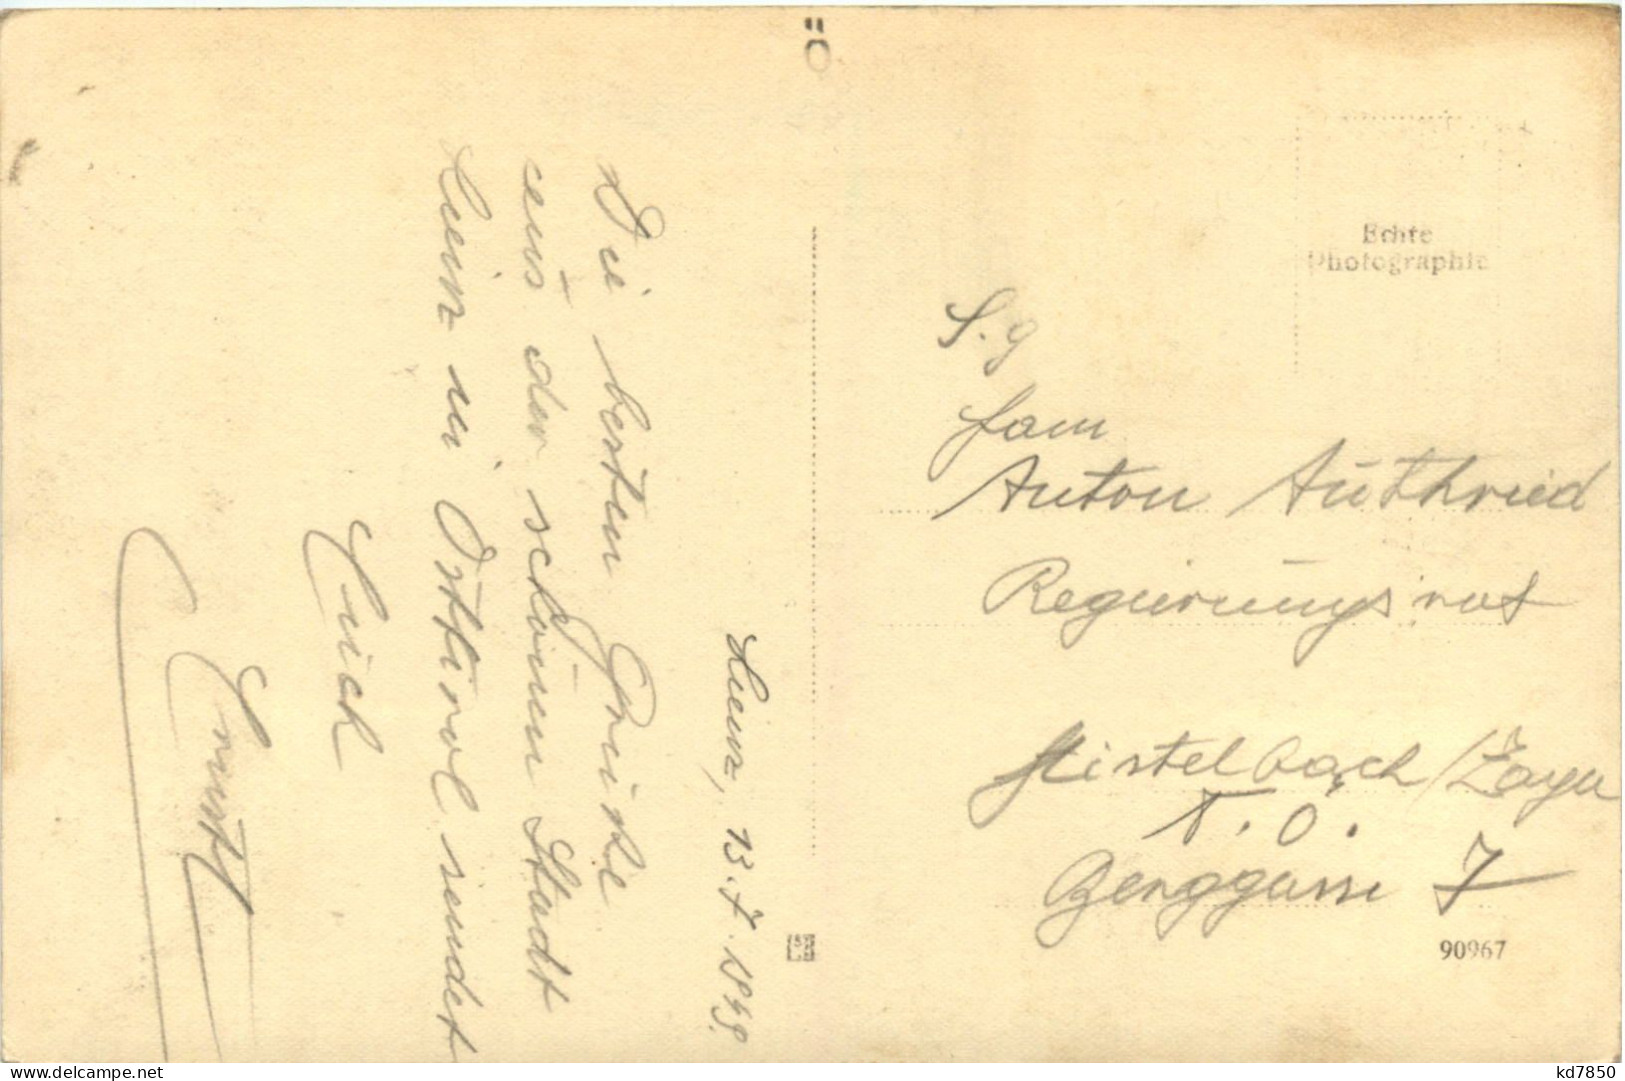 Lienz, 13.7.1949.
Die besten Grüße
aus der schönen Stadt
Lienz in Osttirol sendet
Euch
Ernst
Echte
Photographie
S. g
Fam
Anton Authried
Regierungsrat
Mistelbach/Zaya
N. Ö.
Berggasse 7
90967
delcampe.net
kd7850